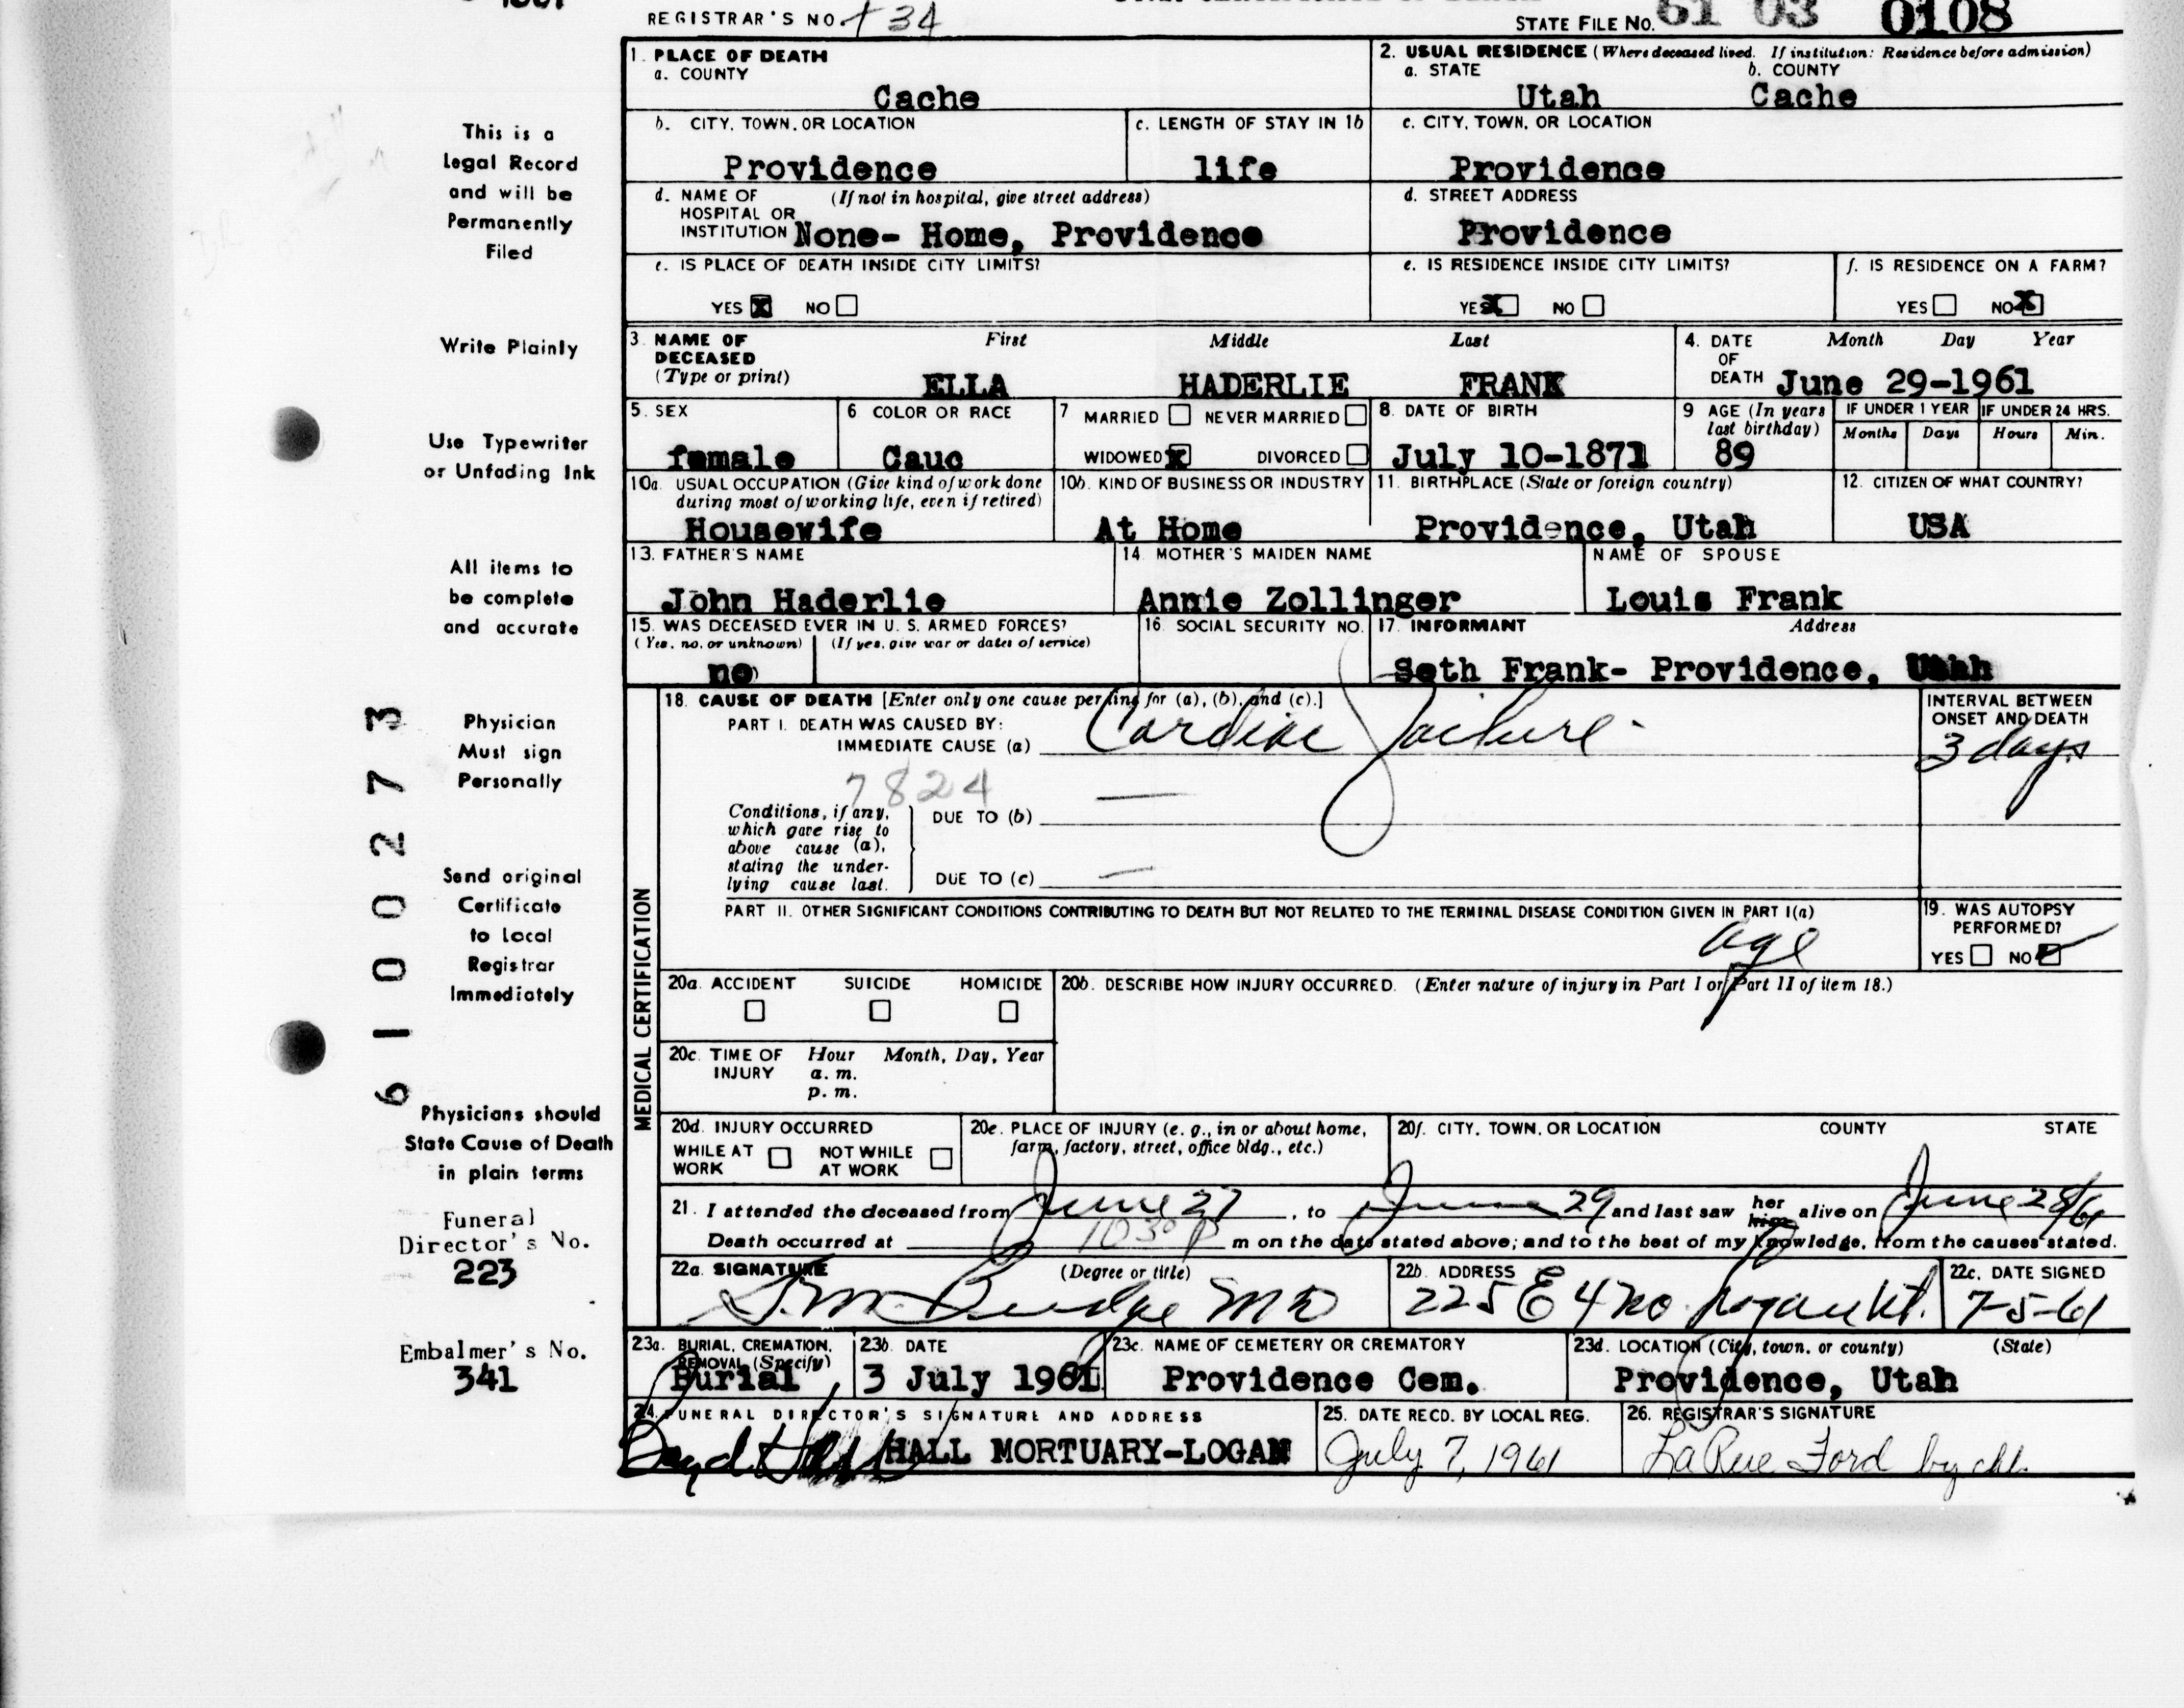 REGISTRAR'S NO. 134
STATE FILE NO. 61 03 0108
1. PLACE OF DEATH
a. COUNTY
Cache
2. USUAL RESIDENCE (Where deceased lived. If institution: Residence before admission)
a. STATE b. COUNTY
Utah Cache
b. CITY, TOWN, OR LOCATION
Providence
c. LENGTH OF STAY IN 1b
life
c. CITY, TOWN, OR LOCATION
Providence
d. NAME OF (If not in hospital, give street address)
HOSPITAL OR
INSTITUTION None- Home, Providence
d. STREET ADDRESS
Providence
e. IS PLACE OF DEATH INSIDE CITY LIMITS?
YES X NO
e. IS RESIDENCE INSIDE CITY LIMITS?
YES X NO
f. IS RESIDENCE ON A FARM?
YES NO X
3. NAME OF DECEASED
(Type or print)
First Middle Last
ELLA HADERLIE FRANK
4. DATE OF DEATH
Month Day Year
June 29-1961
5. SEX
female
6 COLOR OR RACE
Cauc
7 MARRIED NEVER MARRIED
WIDOWED X DIVORCED
8. DATE OF BIRTH
July 10-1871
9 AGE (In years last birthday)
89
IF UNDER 1 YEAR IF UNDER 24 HRS.
Months Days Hours Min.
10a. USUAL OCCUPATION (Give kind of work done
during most of working life, even if retired)
Housewife
10b. KIND OF BUSINESS OR INDUSTRY
At Home
11. BIRTHPLACE (State or foreign country)
Providence, Utah
12. CITIZEN OF WHAT COUNTRY?
USA
13. FATHER'S NAME
John Haderlie
14. MOTHER'S MAIDEN NAME
Annie Zollinger
NAME OF SPOUSE
Louis Frank
15. WAS DECEASED EVER IN U. S. ARMED FORCES?
(Yes, no, or unknown) (If yes, give war or dates of service)
no
16. SOCIAL SECURITY NO.
17. INFORMANT Address
Seth Frank- Providence, Utah
MEDICAL CERTIFICATION
18. CAUSE OF DEATH [Enter only one cause per line for (a), (b), and (c).]
PART I. DEATH WAS CAUSED BY:
IMMEDIATE CAUSE (a) Cardiac Failure -
INTERVAL BETWEEN
ONSET AND DEATH
3 days
7824
Conditions, if any,
which gave rise to
above cause (a),
stating the under-
lying cause last.
DUE TO (b) —
DUE TO (c) —
PART II. OTHER SIGNIFICANT CONDITIONS CONTRIBUTING TO DEATH BUT NOT RELATED TO THE TERMINAL DISEASE CONDITION GIVEN IN PART I(a)
age
19. WAS AUTOPSY
PERFORMED?
YES NO ✓
20a. ACCIDENT SUICIDE HOMICIDE
20b. DESCRIBE HOW INJURY OCCURRED. (Enter nature of injury in Part I or Part II of item 18.)
20c. TIME OF INJURY
Hour Month, Day, Year
a. m.
p. m.
20d. INJURY OCCURRED
WHILE AT WORK NOT WHILE AT WORK
20e. PLACE OF INJURY (e. g., in or about home,
farm, factory, street, office bldg., etc.)
20f. CITY, TOWN, OR LOCATION COUNTY STATE
21. I attended the deceased from June 27, to June 29 and last saw her him alive on June 28/61
Death occurred at 10 30 P m on the date stated above; and to the best of my knowledge, from the causes stated.
22a. SIGNATURE (Degree or title)
Budge MD
22b. ADDRESS
225 E 4 No. Logan Ut.
22c. DATE SIGNED
7-5-61
23a. BURIAL, CREMATION,
REMOVAL (Specify)
Burial
23b. DATE
3 July 1961
23c. NAME OF CEMETERY OR CREMATORY
Providence Cem.
23d. LOCATION (City, town, or county) (State)
Providence, Utah
24. FUNERAL DIRECTOR'S SIGNATURE AND ADDRESS
HALL MORTUARY-LOGAN
25. DATE RECD. BY LOCAL REG.
July 7, 1961
26. REGISTRAR'S SIGNATURE
LaRue Ford by
This is a
Legal Record
and will be
Permanently
Filed
Write Plainly
Use Typewriter
or Unfading Ink
All items to
be complete
and accurate
Physician
Must sign
Personally
Send original
Certificate
to Local
Registrar
Immediately
Physicians should
State Cause of Death
in plain terms
Funeral
Director's No.
223
Embalmer's No.
341
6100273